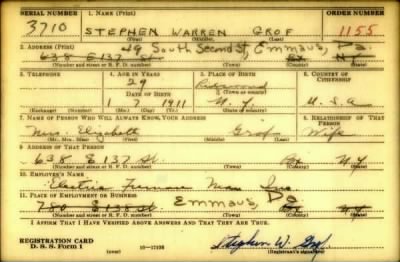 SERIAL NUMBER 1. NAME (Print) ORDER NUMBER
3710 STEPHEN WARREN GROF 1155
(First) (Middle) (Last)
49 South Second St, Emmaus, Pa.
2. ADDRESS (Print)
638 E 137 St. Bx N.Y.
(Number and street or R. F. D. number) (Town) (County) (State)
3. TELEPHONE 4. AGE IN YEARS 5. PLACE OF BIRTH 6. COUNTRY OF CITIZENSHIP
29
DATE OF BIRTH (Town or county)
1 7 1911 N.Y. U.S.A
(Exchange) (Number) (Mo.) (Day) (Yr.) (State or country)
7. NAME OF PERSON WHO WILL ALWAYS KNOW YOUR ADDRESS 8. RELATIONSHIP OF THAT PERSON
Mrs. Elizabeth Grof Wife
(Mr., Mrs., Miss) (First) (Middle) (Last)
9. ADDRESS OF THAT PERSON
638 E 137 St. Bx N.Y.
(Number and street or R. F. D. number) (Town) (County) (State)
10. EMPLOYER'S NAME
Electric Furnace Inc.
11. PLACE OF EMPLOYMENT OR BUSINESS Emmaus, Pa
780 E 138 St. Bx N.Y.
(Number and street or R. F. D. number) (Town) (County) (State)
I AFFIRM THAT I HAVE VERIFIED ABOVE ANSWERS AND THAT THEY ARE TRUE.
REGISTRATION CARD
D. S. S. Form 1 (over) 16—17105 Stephen W. Grof
(Registrant's signature)